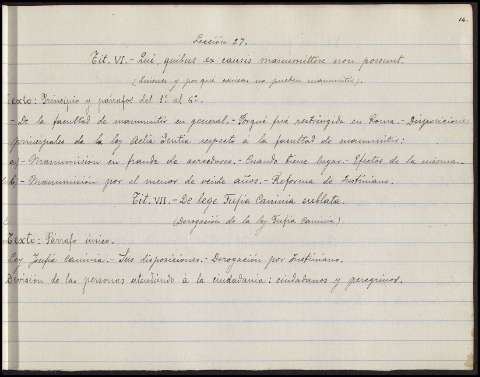 14.
Lección 27.
Tít. VI.- Qui, quibus ex causis manumittere non possunt.
(Quienes y por qué causas no pueden manumitir).
Texto: Principio y párrafos del 1º al 6º.
- De la facultad de manumitir en general.- Porqué fué restringida en Roma.- Disposiciones
principales de la ley Aelia Sentia respecto á la facultad de manumitir:
a)- Manumisión en fraude de acreedores.- Cuando tiene lugar.- Efectos de la misma.
b)- Manumisión por el menor de veinte años.- Reforma de Justiniano.
Tít. VII.- De lege Fufia Caninia sublata.
(Derogación de la ley Fufia Caninia)
Texto: Párrafo único.
Ley Fufia Caninia.- Sus disposiciones.- Derogación por Justiniano.
División de las personas atendiendo á la ciudadanía: ciudadanos y peregrinos.